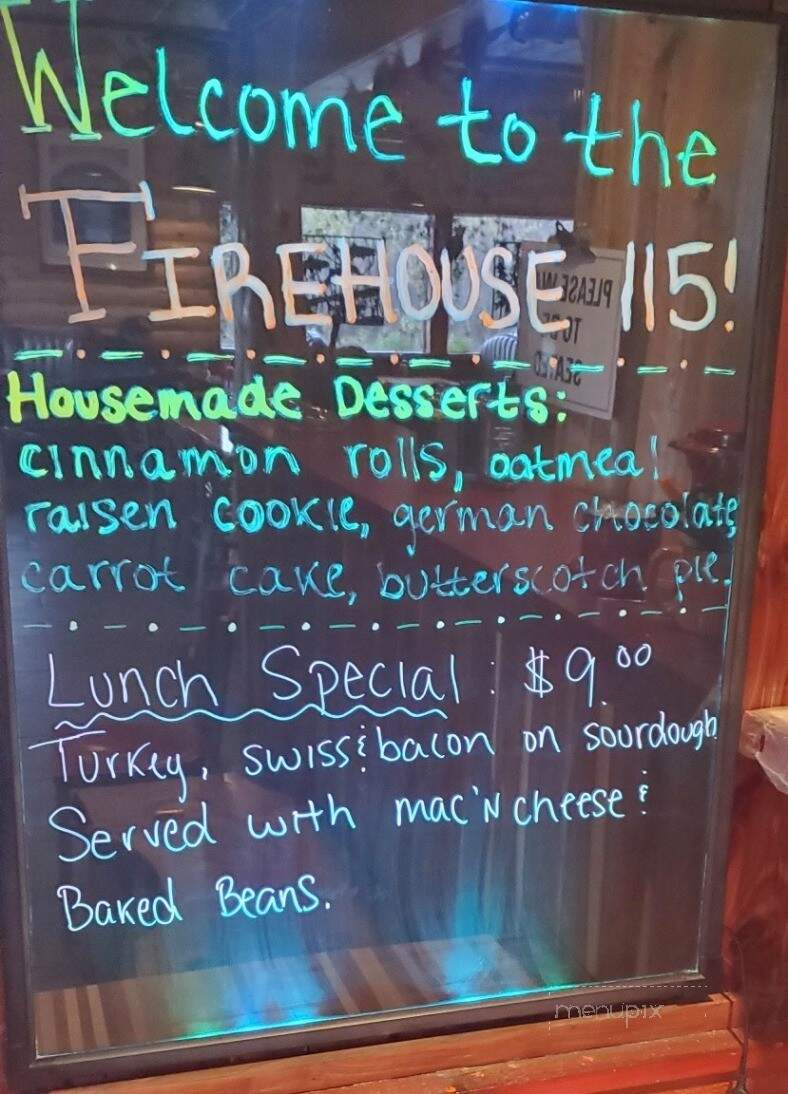 Welcome to the
FIREHOUSE 115!
Housemade Desserts:
cinnamon rolls, oatmeal
raisen cookie, german chocolate,
carrot cake, butterscotch pie.
Lunch Special : $9.00
Turkey, swiss & bacon on sourdough
Served with mac 'N cheese &
Baked Beans.
PLEASE WAIT
TO BE
SEATED
menupix